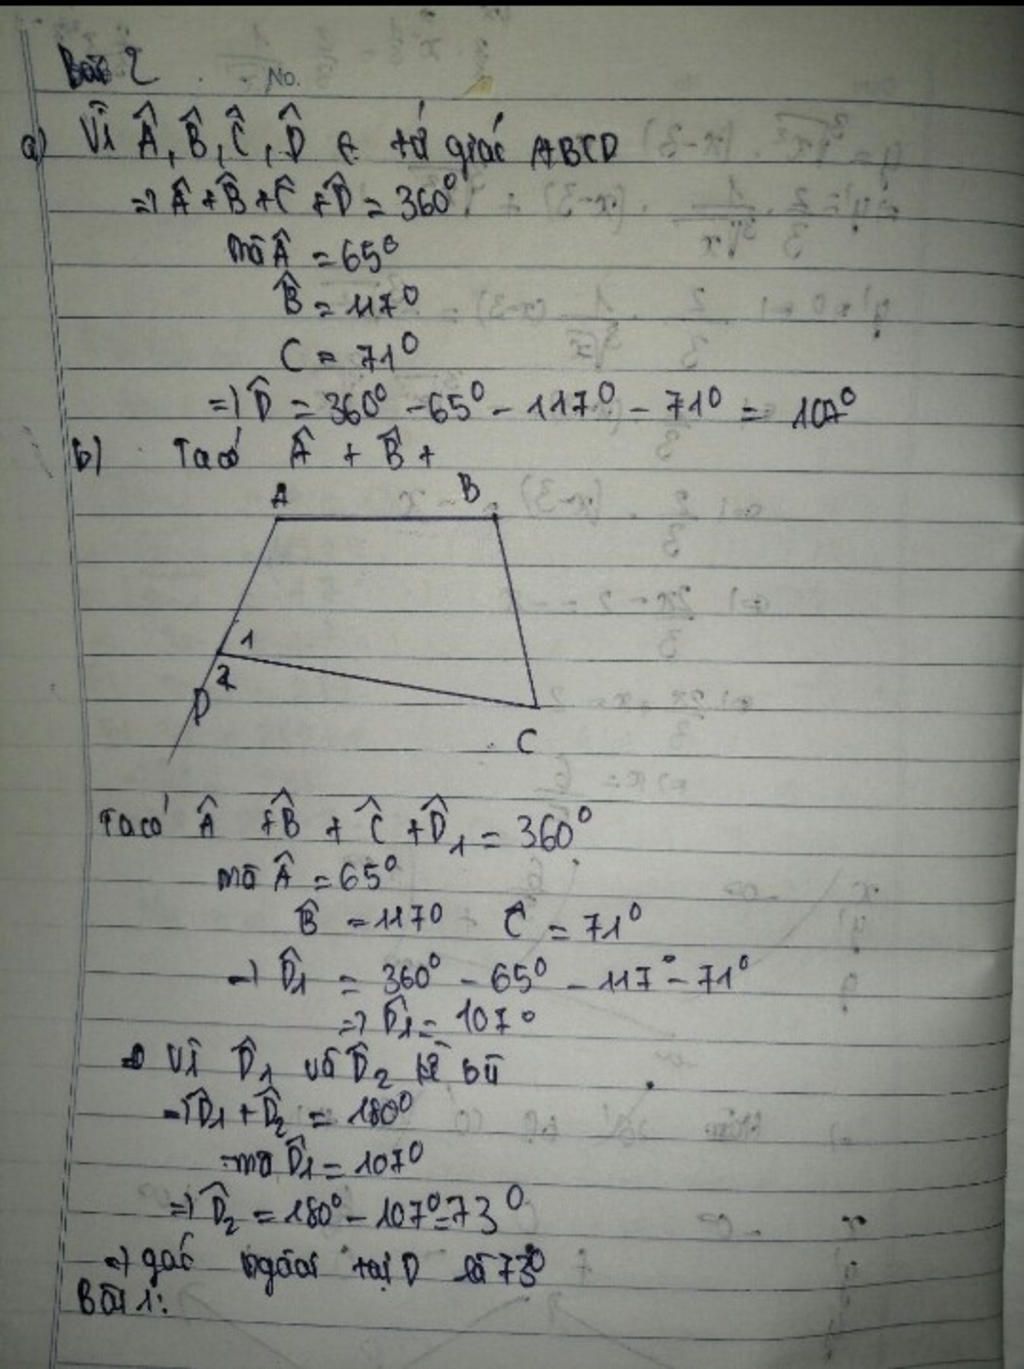 Bài 2
No.
a) Vì Â, B̂, Ĉ, D̂ ∈ tứ giác ABCD
=> Â + B̂ + Ĉ + D̂ = 360⁰
mà Â = 65⁰
B̂ = 117⁰
C = 71⁰
=> D̂ = 360⁰ - 65⁰ - 117⁰ - 71⁰ = 107⁰
b) Ta có Â + B̂ +
A B
1
2
D
C
Ta có Â + B̂ + Ĉ + D̂₁ = 360⁰
mà Â = 65⁰
B̂ = 117⁰ Ĉ = 71⁰
=> D̂₁ = 360⁰ - 65⁰ - 117⁰ - 71⁰
=> D̂₁ = 107⁰
Vì D̂₁ và D̂₂ kề bù
=> D̂₁ + D̂₂ = 180⁰
mà D̂₁ = 107⁰
=> D̂₂ = 180⁰ - 107⁰ = 73⁰
=> góc ngoài tại D là 73⁰
Bài 1: